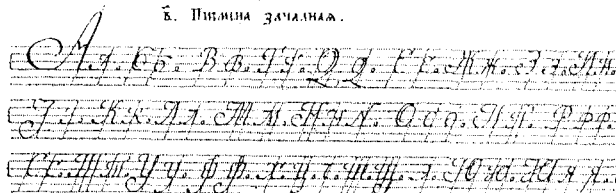 в҃. Писмена зачалная.
Аа. Бб. Вв. Гг. Дд. Ее. Жж. Зз. Ии.
Іі. Кк. Лл. Мм. Нн N. Оо. Пп. Рр
Сс. Тт. Уу. Фф. х. ц. ч. ш. щ. Юю. Я я.